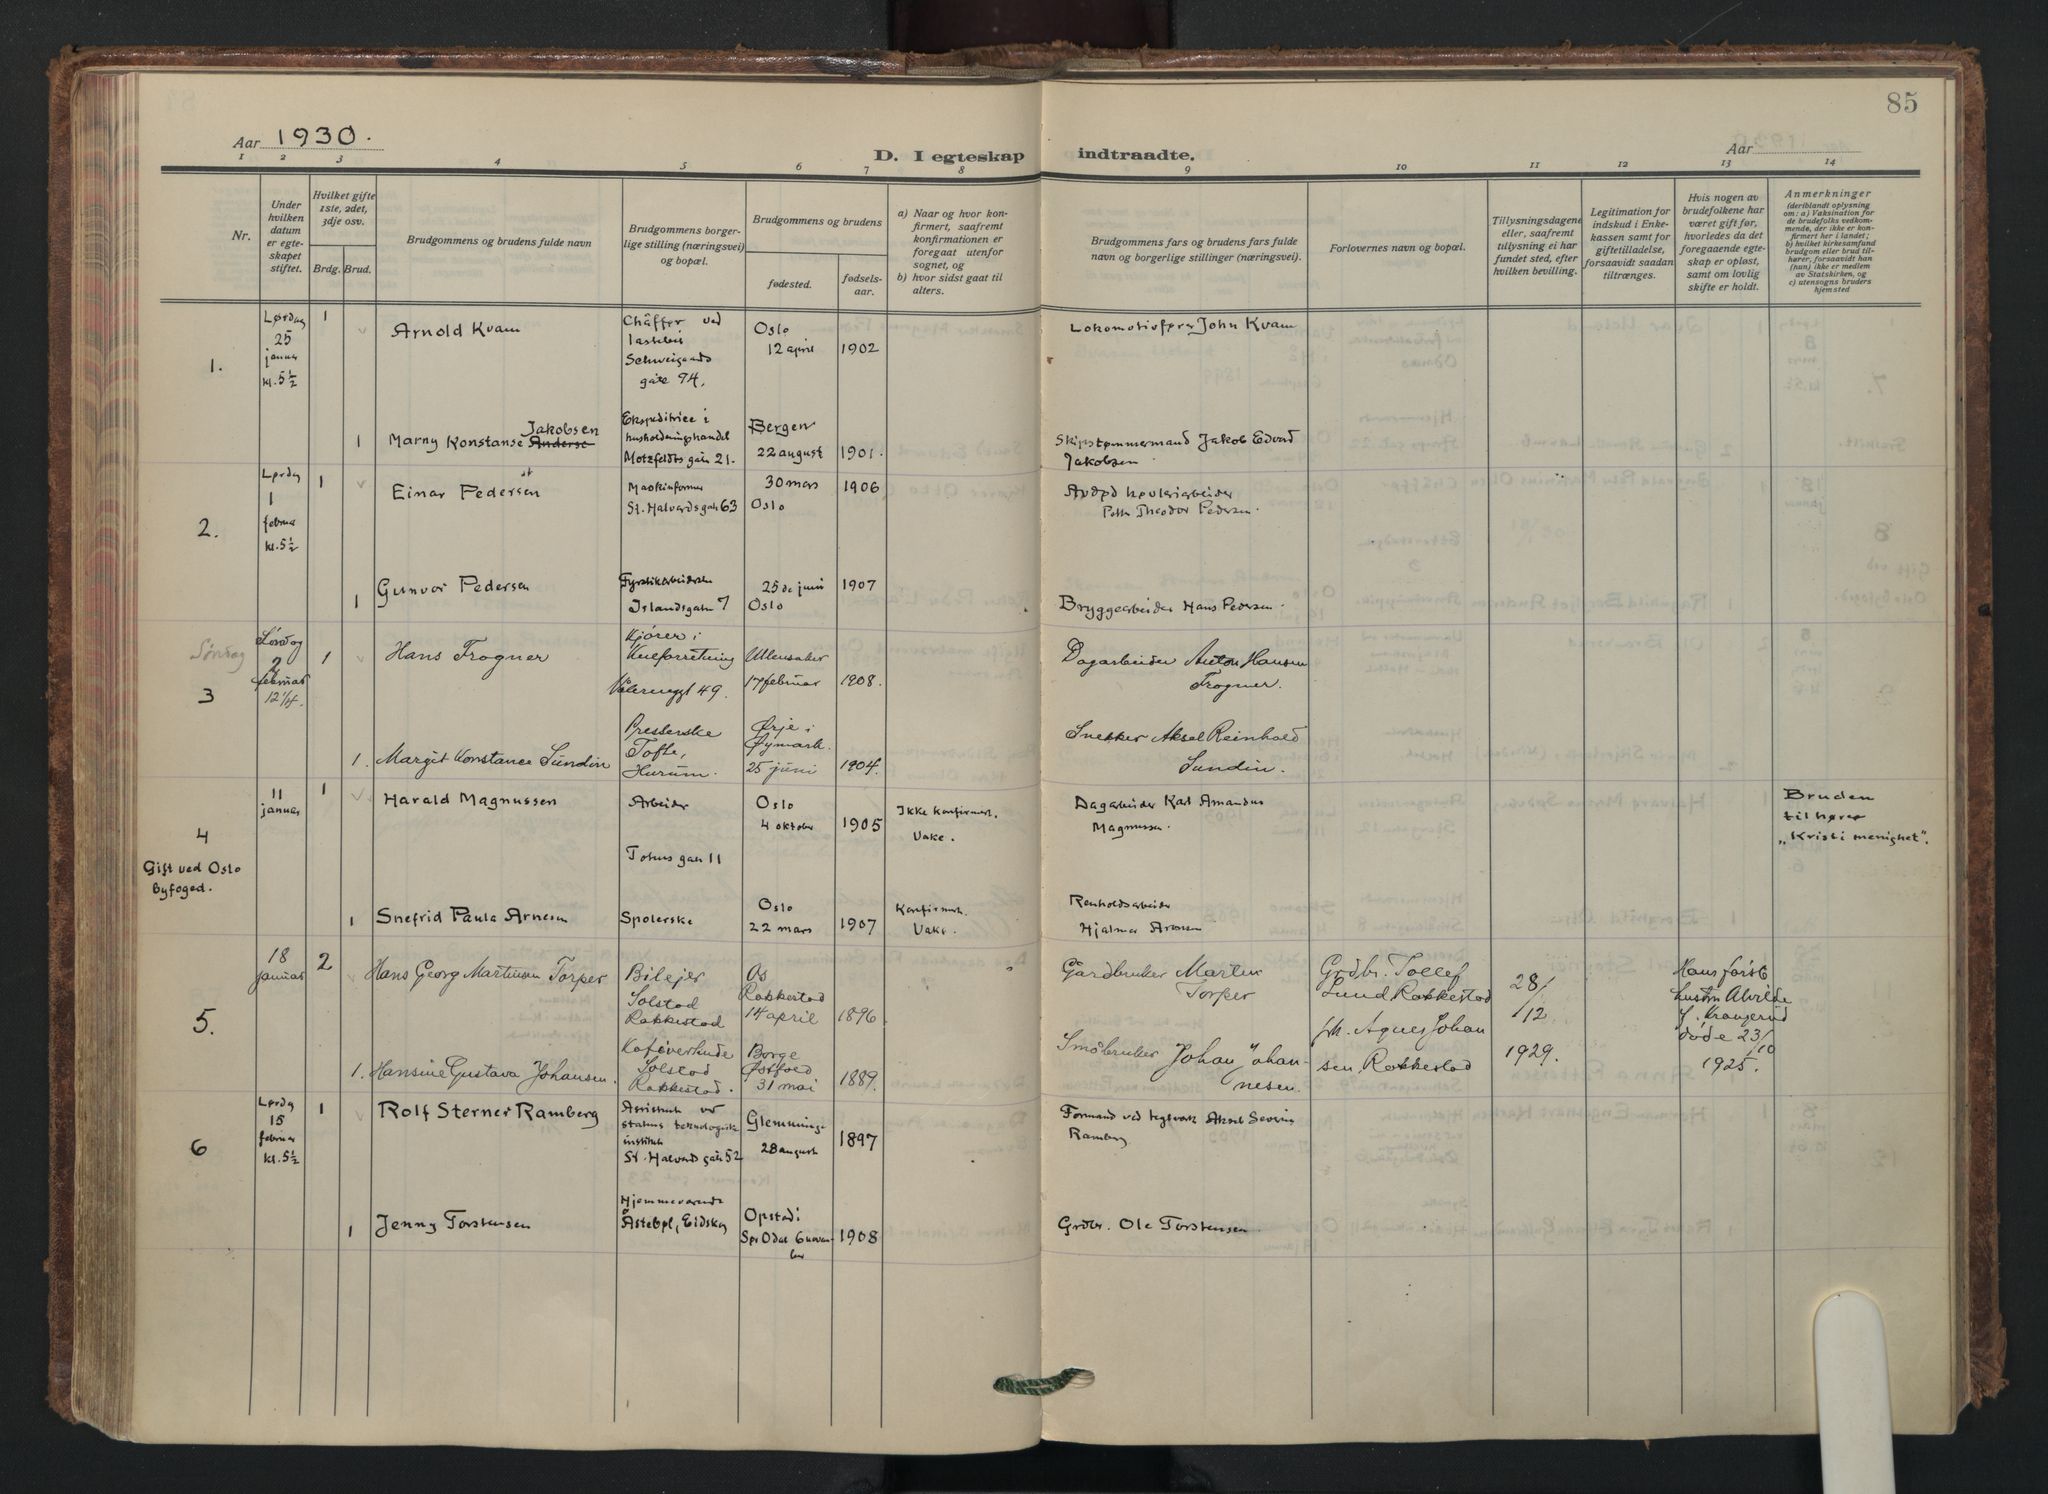 85
Aar 1930.
D. I egteskap indtraadte.
Aar
1 2 3 4 5 6 7 8 9 10 11 12 13 14
Nr.
Under hvilken datum er egteskapet stiftet.
Hvilket gifte 1ste, 2det, 3dje osv.
Brdg. Brud.
Brudgommens og brudens fulde navn
Brudgommens borgerlige stilling (næringsvei) og bopæl.
Brudgommens og brudens
fødested.
fødselsaar.
a) Naar og hvor konfirmert, saafremt konfirmationen er foregaat utenfor sognet, og
b) hvor sidst gaat til alters.
Brudgommens fars og brudens fars fulde navn og borgerlige stillinger (næringsvei).
Forlovernes navn og bopæl.
Tillysningsdagene eller, saafremt tillysning ei har fundet sted, efter hvilken bevilling.
Legitimation for indskud i Enkekassen samt for giftetilladelse, forsaavidt saadan tiltrænges.
Hvis nogen av brudefolkene har været gift før, hvorledes da det foregaaende egteskap er opløst, samt om lovlig skifte er holdt.
Anmerkninger
(deriblandt oplysning om: a) Vaksination for de brudefolks vedkommende, der ikke er konfirmert her i landet;
b) hvilket kirkesamfund brudgom eller brud tilhører, forsaavidt han (hun) ikke er medlem av Statskirken, og
c) utensogns bruders hjemsted
1.
Lørdag
25
januar
kl. 5 1/2
1
Arnold Kvam
Châffør ved
lastebil
Schweigaards
gate 94.
Oslo
12 april
1902
Lokomotivfører John Kvam
1
Marny Konstanse Anderse Jakobsen
Ekspeditrice i
husholdningshandel
Motzfeldts gate 21.
Bergen
22 august
1901.
Skipstømmermand Jakob Edvard
Jakobsen
2.
Lørdag
1
februar
kl. 5 1/2
1
Einar Pedersen
Maskinformer
St. Halvards gate 63
30 mars
Oslo
1906
Avdød høvleriarbeider
Petter Theodor Pedersen.
1
Gunvor Pedersen
Fyrstikarbeiderske
Islandsgate 7
25de juni
Oslo
1907
Bryggearbeider Hans Pedersen.
Søndag
3
Søndag
2
februar
12 1/4.
1
Hans Frogner
Kjører i
Vålerenggt 49.
Ullensaker
17 februar
1908.
Dagarbeider Anton Hansen
Frogner.
1.
Margit Konstance Sundin
Presserske
Tofte,
Hurum.
Ørje i
Øymark.
25 juni
1904.
Snekker Aksel Reinhold
Sundin.
4
Gift ved Oslo
Byfoged.
11
januar
1
Harald Magnussen
Arbeider
Tøyens gate 11
Oslo
4 oktober
1905
Ikke konfirmert.
Vake.
Dagarbeider Karl Amandus
Magnussen.
Bruden
tilhører
„Kristi menighet".
1
Snefrid Paula Arnesen
Spolerske
Oslo
22 mars
1907
Konfirmert.
Vake.
Renholdsarbeider
Hjalmar Arnesen
5.
18
januar
2
Hans Georg Martinsen Torper
Bileier
Solstad
Rakkestad
Os
Rakkestad
14 april
1896
Gårdbruker Martin
Torper
Grdbr. Tollef
Lund Rakkestad
frk. Agnes Johansen, Rakkestad
28/
/12
1929.
Hans første
hustru Alvilde
f. Krangerud
døde 23/
/10
1925.
1.
Hansine Gustava Johansen.
Kafévertinde
Solstad
Rakkestad.
Borge
Østfold
31 mai
1889.
Småbruker Johan Johannesen.
6
Lørdag
15
februar
kl. 5 1/2
1
Rolf Sterner Ramberg
Assistent ved
statens teknologiske
institut
St. Halvards gate 52
Glemminge
28 august
1897
Formand ved teglverk Aksel Severin
Ramberg
1
Jenny Torstensen
Hjemmeværende
Åstebøl, Eidskog
Opstad i
Spr Odal 6 november
1908
Grdbr. Ole Torstensen.